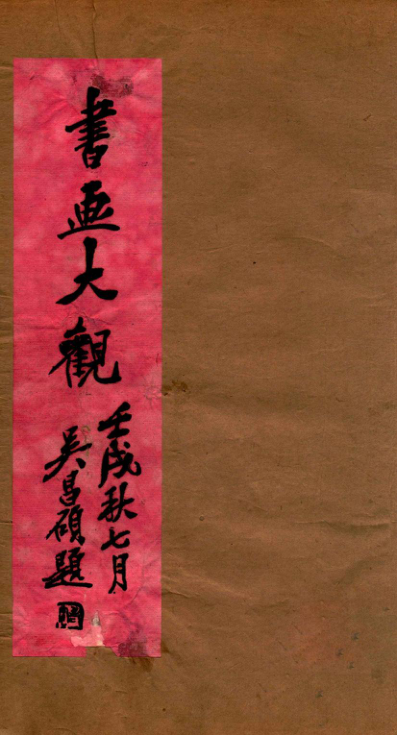 書画大觀
壬戌秋七月
吳昌碩題